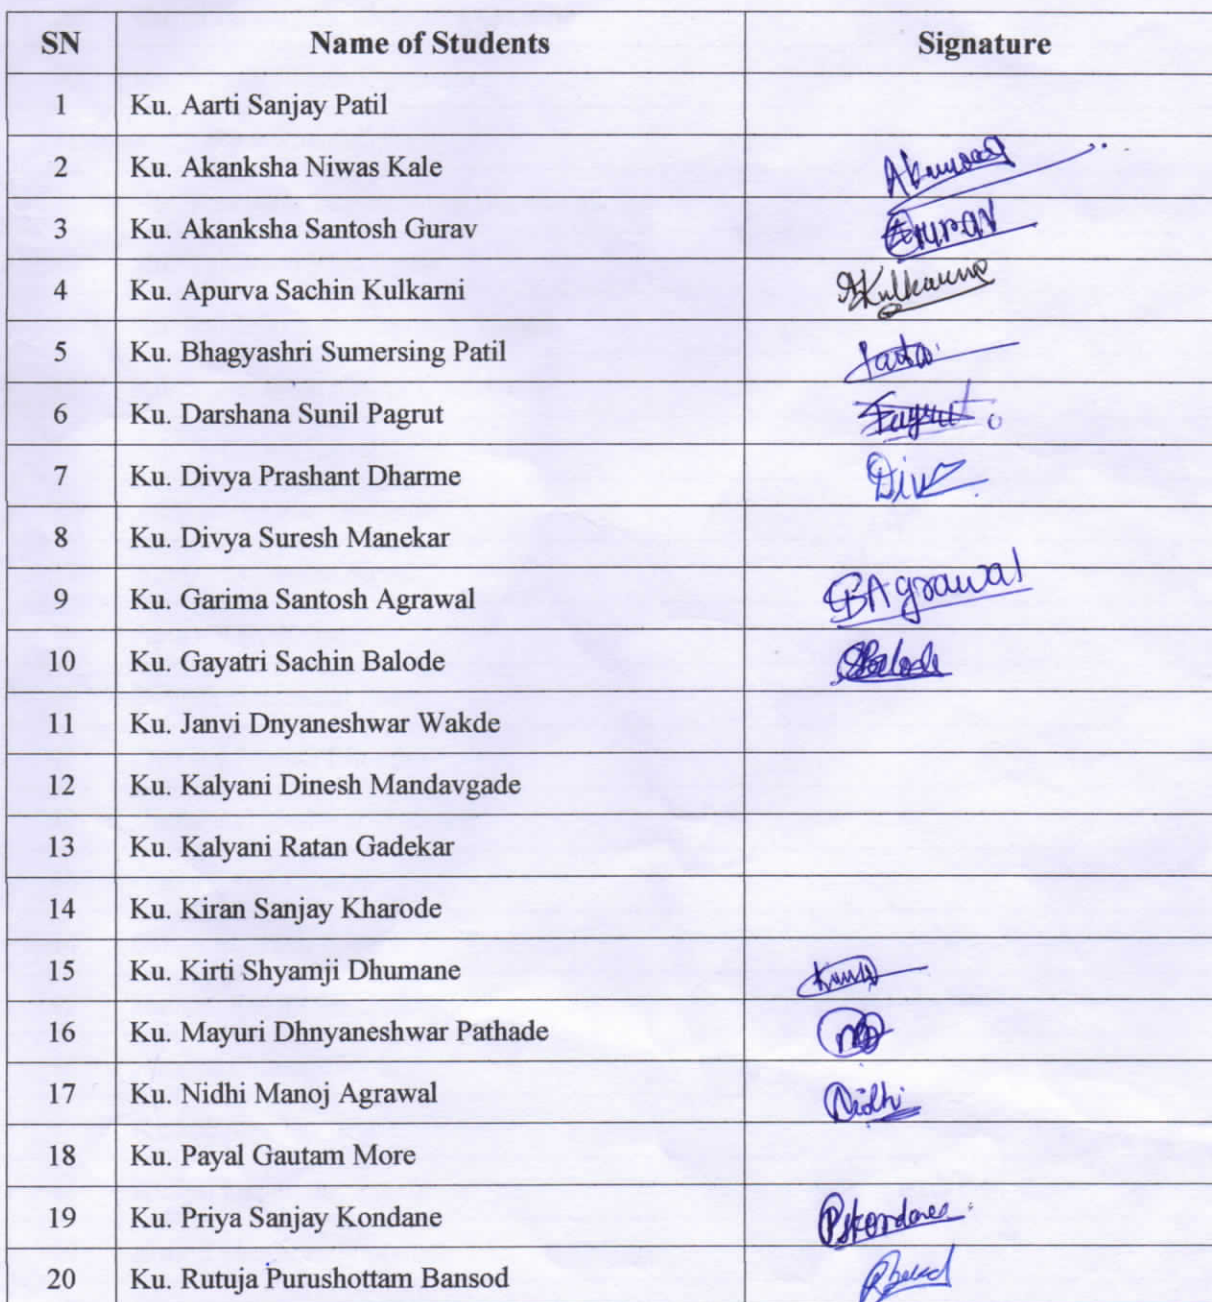 SN Name of Students Signature
1 Ku. Aarti Sanjay Patil
2 Ku. Akanksha Niwas Kale
3 Ku. Akanksha Santosh Gurav Gurav
4 Ku. Apurva Sachin Kulkarni Kulkarni
5 Ku. Bhagyashri Sumersing Patil
6 Ku. Darshana Sunil Pagrut Pagrut
7 Ku. Divya Prashant Dharme
8 Ku. Divya Suresh Manekar
9 Ku. Garima Santosh Agrawal Agrawal
10 Ku. Gayatri Sachin Balode Balode
11 Ku. Janvi Dnyaneshwar Wakde
12 Ku. Kalyani Dinesh Mandavgade
13 Ku. Kalyani Ratan Gadekar
14 Ku. Kiran Sanjay Kharode
15 Ku. Kirti Shyamji Dhumane
16 Ku. Mayuri Dhnyaneshwar Pathade
17 Ku. Nidhi Manoj Agrawal Nidhi
18 Ku. Payal Gautam More
19 Ku. Priya Sanjay Kondane
20 Ku. Rutuja Purushottam Bansod